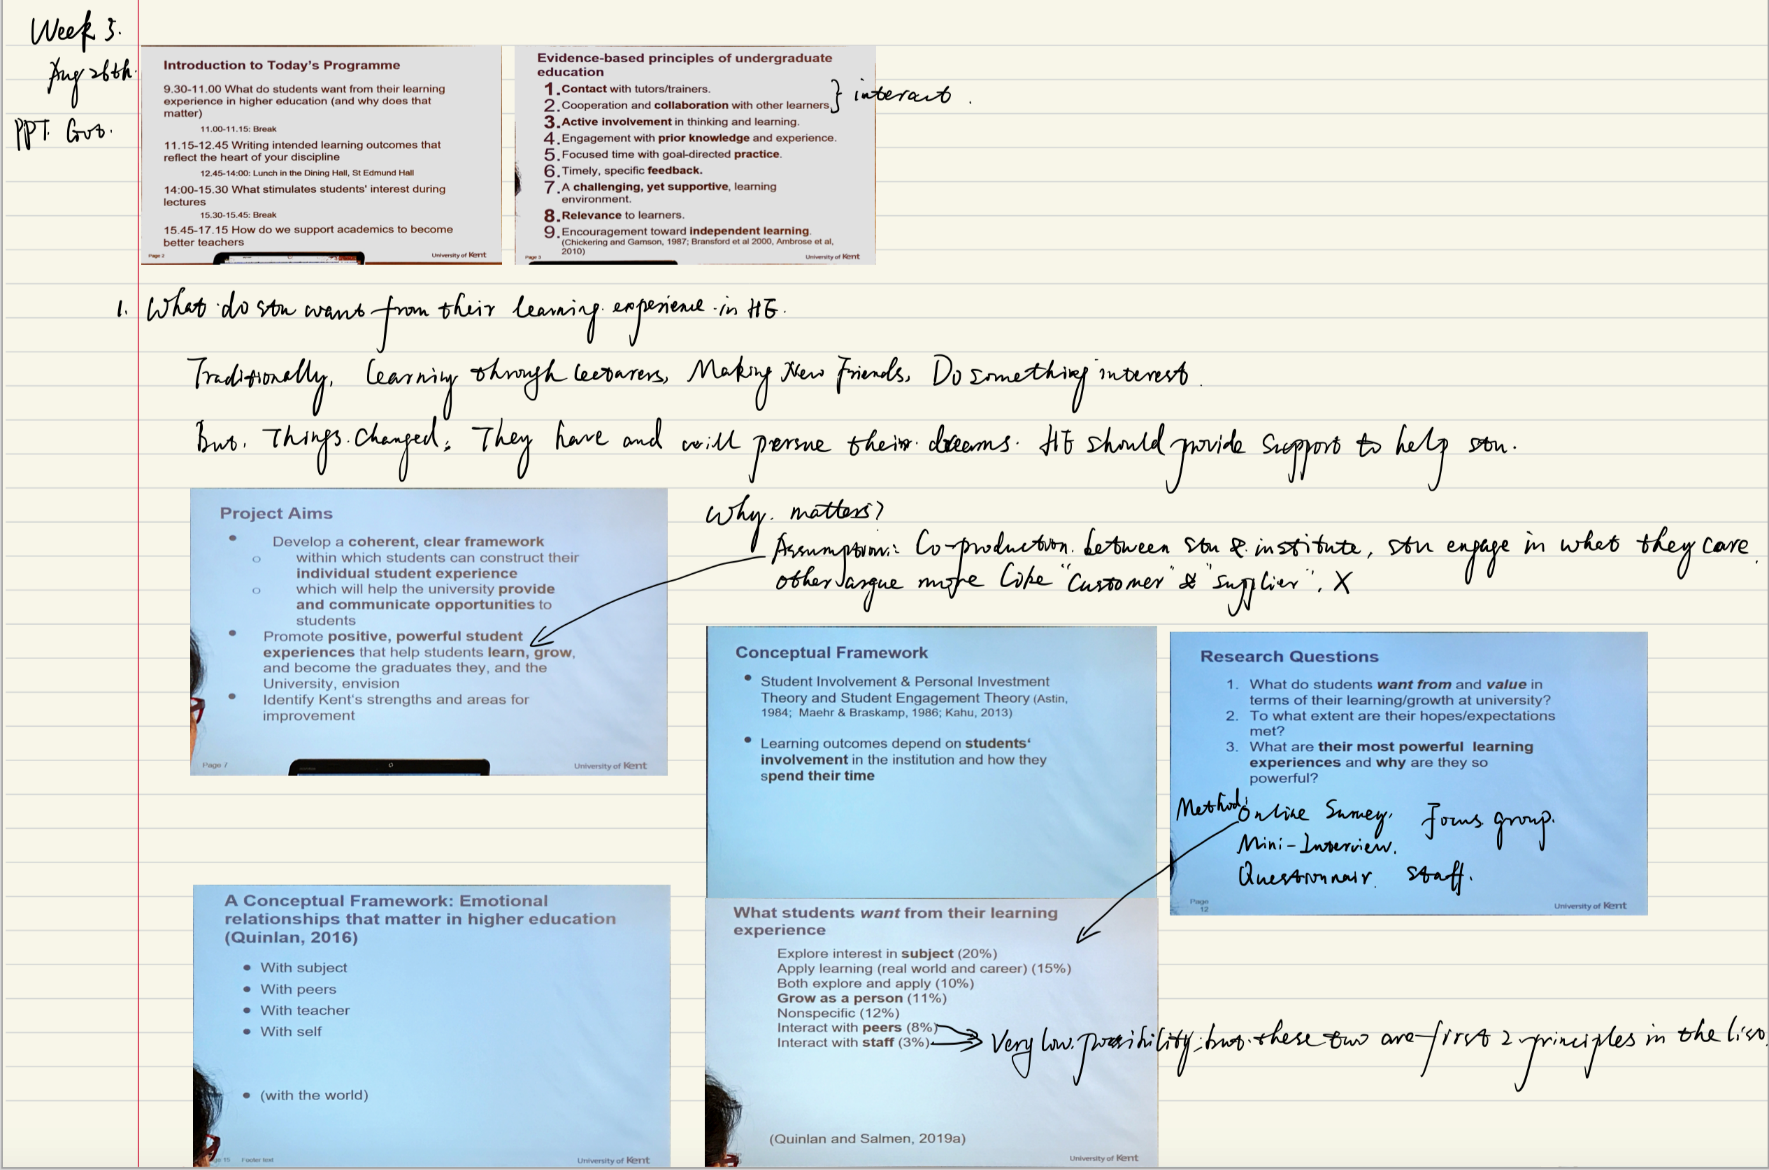 Week 3.
Aug 26th.
PPT. Got.
Introduction to Today's Programme
9.30-11.00 What do students want from their learning
experience in higher education (and why does that
matter)
11.00-11.15: Break
11.15-12.45 Writing intended learning outcomes that
reflect the heart of your discipline
12.45-14:00: Lunch in the Dining Hall, St Edmund Hall
14:00-15.30 What stimulates students' interest during
lectures
15.30-15.45: Break
15.45-17.15 How do we support academics to become
better teachers
Page 2
University of Kent
Evidence-based principles of undergraduate
education
1. Contact with tutors/trainers.
2. Cooperation and collaboration with other learners.
3. Active involvement in thinking and learning.
4. Engagement with prior knowledge and experience.
5. Focused time with goal-directed practice.
6. Timely, specific feedback.
7. A challenging, yet supportive, learning
environment.
8. Relevance to learners.
9. Encouragement toward independent learning.
(Chickering and Gamson, 1987; Bransford et al 2000, Ambrose et al,
2010)
Page 3
University of Kent
interact.
1. What do stu want from their learning experience in HE.
Traditionally, learning through lecturers, Making New Friends, Do something interest.
But. Things changed. They have and will persue their dreams. HE should provide support to help stu.
Project Aims
Develop a coherent, clear framework
within which students can construct their
individual student experience
which will help the university provide
and communicate opportunities to
students
Promote positive, powerful student
experiences that help students learn, grow,
and become the graduates they, and the
University, envision
Identify Kent's strengths and areas for
improvement
Page 7
University of Kent
Why. matters?
Assumption: Co-production between stu & institute, stu engage in what they care.
other argue more like "Customer" & "supplier". X
Conceptual Framework
Student Involvement & Personal Investment
Theory and Student Engagement Theory (Astin,
1984; Maehr & Braskamp, 1986; Kahu, 2013)
Learning outcomes depend on students'
involvement in the institution and how they
spend their time
Research Questions
1. What do students want from and value in
terms of their learning/growth at university?
2. To what extent are their hopes/expectations
met?
3. What are their most powerful learning
experiences and why are they so
powerful?
Method: Online Survey. Focus group.
Mini-Interview.
Questionnair. staff.
Page
12
University of Kent
A Conceptual Framework: Emotional
relationships that matter in higher education
(Quinlan, 2016)
With subject
With peers
With teacher
With self
(with the world)
15 Footer text
University of Kent
What students want from their learning
experience
Explore interest in subject (20%)
Apply learning (real world and career) (15%)
Both explore and apply (10%)
Grow as a person (11%)
Nonspecific (12%)
Interact with peers (8%)
Interact with staff (3%)
Very low possibility, but these two are first 2 principles in the list.
(Quinlan and Salmen, 2019a)
University of Kent